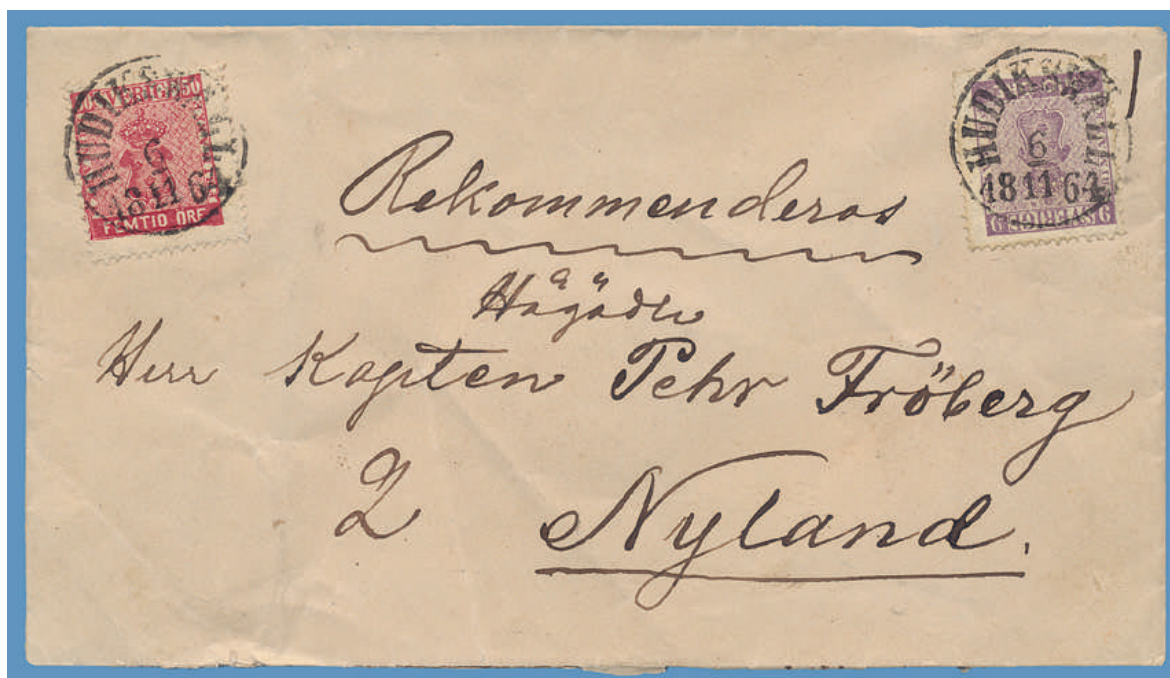 50 SVERIGE 50
FEMTIO ÖRE
HUDIKSWALL
6
18 11 64
HUDIKSWALL
6
18 11 64
9 SVERIGE 9
Rekommenderas
Högädle
Herr Kapten Pehr Fröberg
2 Nyland.